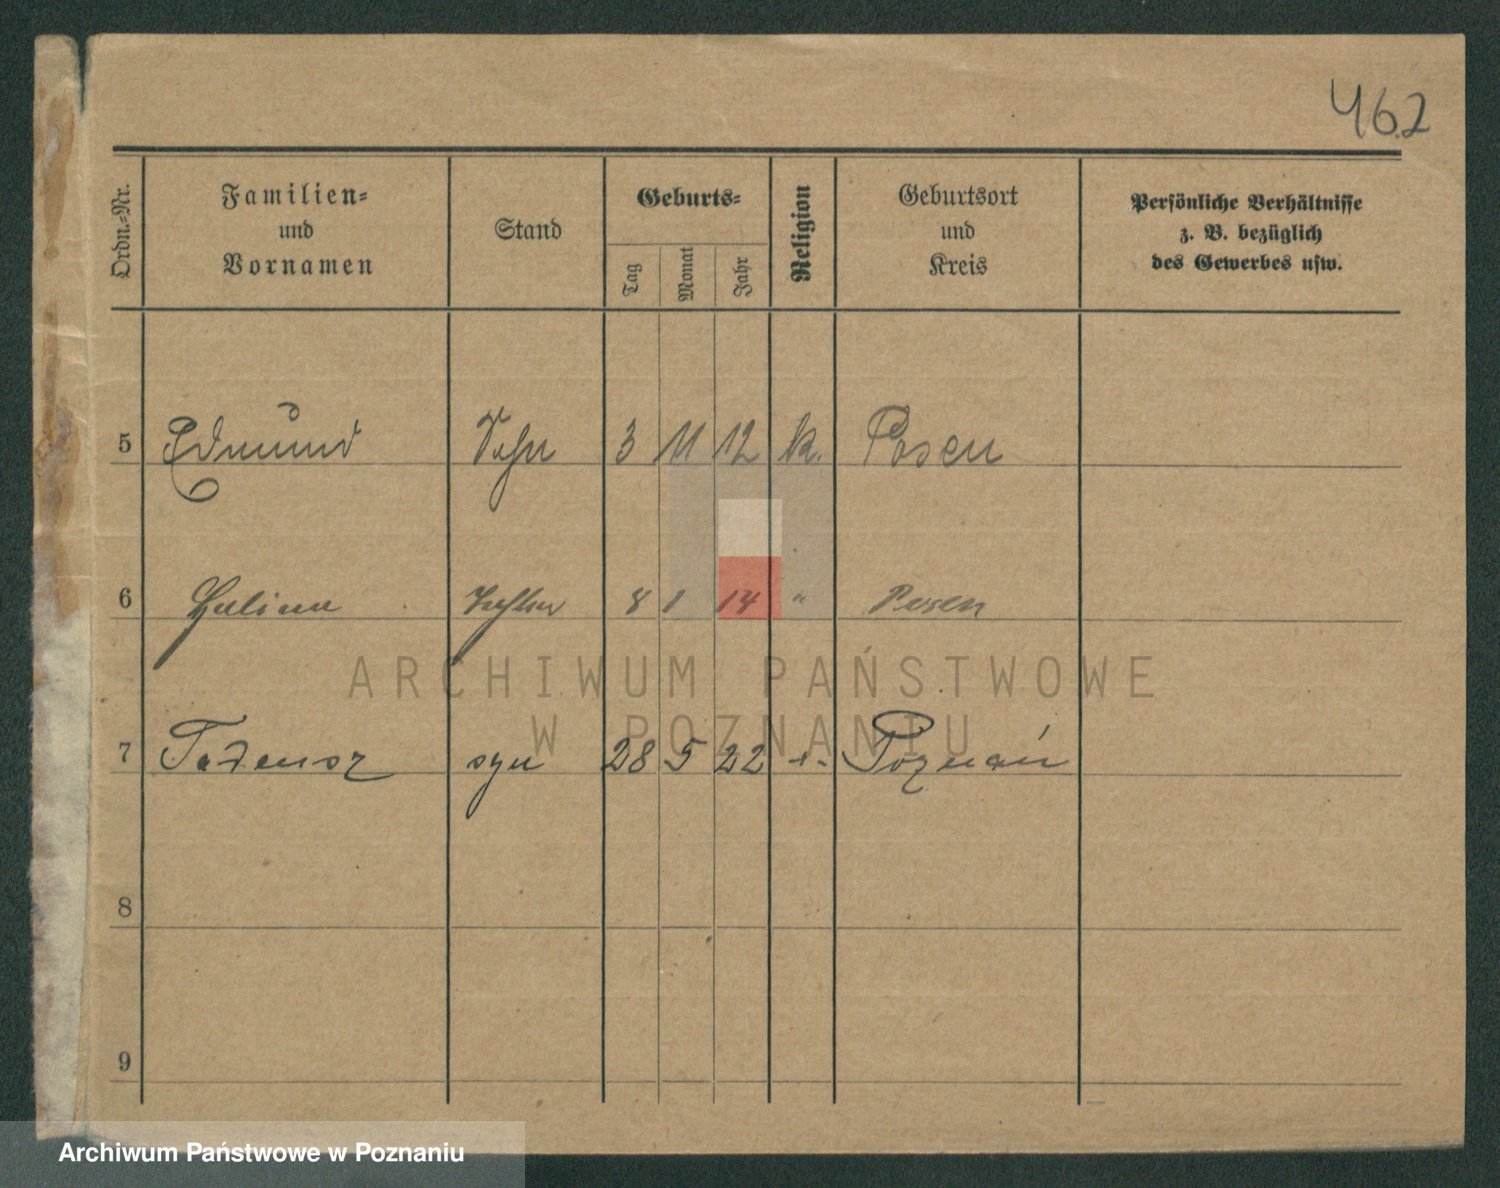 462
Ordn.-Nr.
Familien-
und
Vornamen
Stand
Geburts-
Tag
Monat
Jahr
Religion
Geburtsort
und
Kreis
Persönliche Verhältnisse
z. B. bezüglich
des Gewerbes usw.
5 Edmund Sohn 3 11 12 k. Posen
6 Halina Tochter 8 1 14 " Posen
7 Tadeusz syn 28 5 22 -"- Poznań
8
9
ARCHIWUM PAŃSTWOWE
W POZNANIU
Archiwum Państwowe w Poznaniu